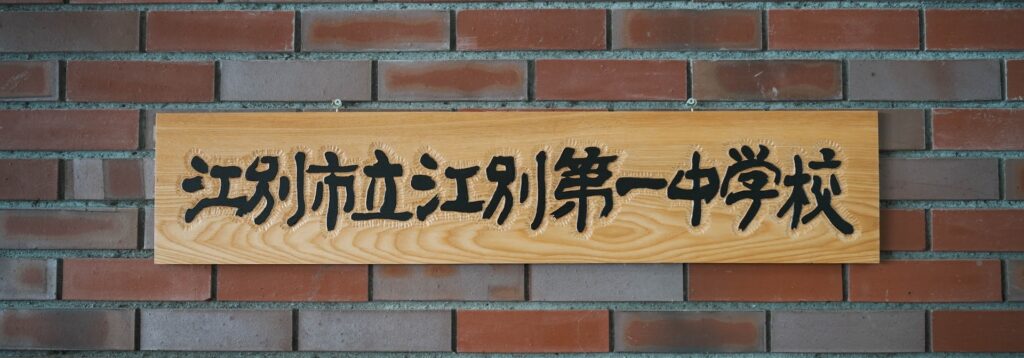 江別市立江別第一中学校